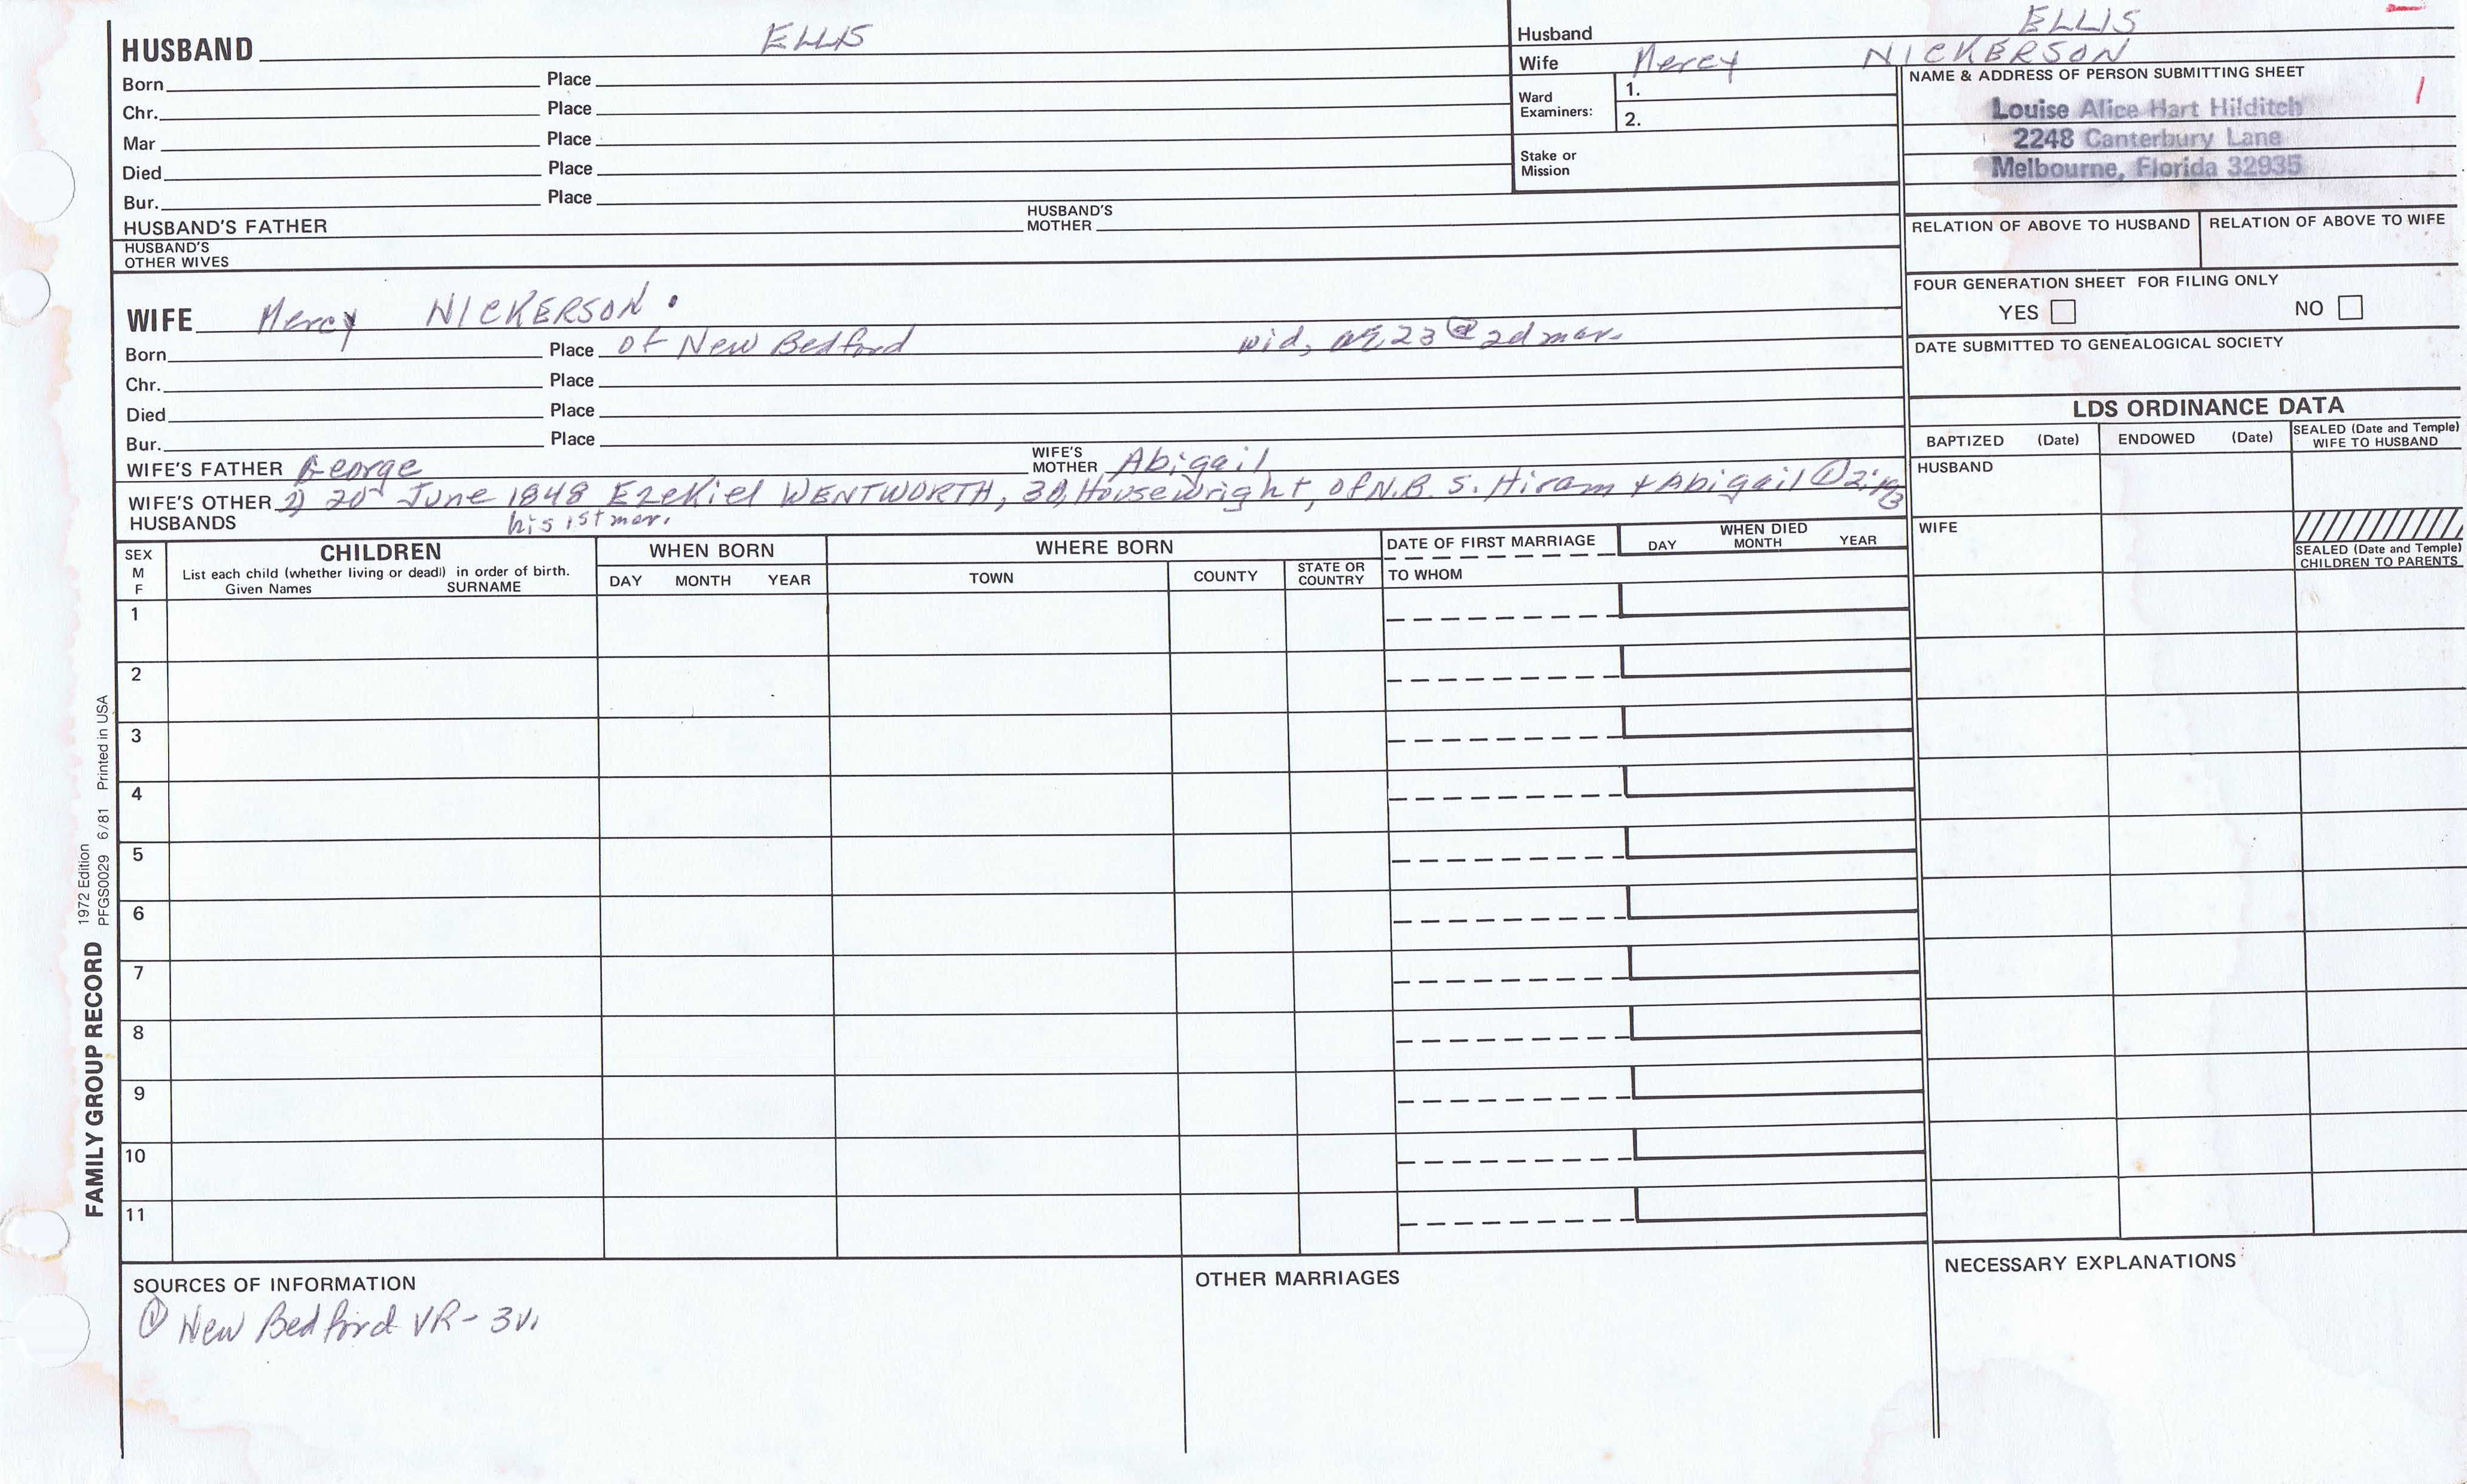 HUSBAND ELLIS
Born Place
Chr. Place
Mar Place
Died Place
Bur. Place
HUSBAND'S FATHER HUSBAND'S MOTHER
HUSBAND'S OTHER WIVES
Husband ELLIS
Wife Mercy NICKERSON
Ward Examiners: 1.
2.
Stake or Mission
NAME & ADDRESS OF PERSON SUBMITTING SHEET
Louise Alice Hart Hilditch
2248 Canterbury Lane
Melbourne, Florida 32935
RELATION OF ABOVE TO HUSBAND RELATION OF ABOVE TO WIFE
FOUR GENERATION SHEET FOR FILING ONLY
YES NO
DATE SUBMITTED TO GENEALOGICAL SOCIETY
WIFE Mercy NICKERSON.
Born Place of New Bedford wid, 23 @ 2d mar.
Chr. Place
Died Place
Bur. Place
WIFE'S FATHER George WIFE'S MOTHER Abigail
WIFE'S OTHER HUSBANDS 2) 20 June 1848 Ezekiel WENTWORTH, 30, Housewright, of N.B. S. Hiram & Abigail
his 1st mar.
LDS ORDINANCE DATA
BAPTIZED (Date) ENDOWED (Date) SEALED (Date and Temple) WIFE TO HUSBAND
HUSBAND
WIFE
SEALED (Date and Temple) CHILDREN TO PARENTS
SEX M F
CHILDREN
List each child (whether living or dead) in order of birth.
Given Names SURNAME
WHEN BORN
DAY MONTH YEAR
WHERE BORN
TOWN COUNTY STATE OR COUNTRY
DATE OF FIRST MARRIAGE
TO WHOM
WHEN DIED
DAY MONTH YEAR
1
2
3
4
5
6
7
8
9
10
11
FAMILY GROUP RECORD
1972 Edition
PFGS0029 6/81 Printed in USA
SOURCES OF INFORMATION
① New Bedford VR - 3v.
OTHER MARRIAGES
NECESSARY EXPLANATIONS